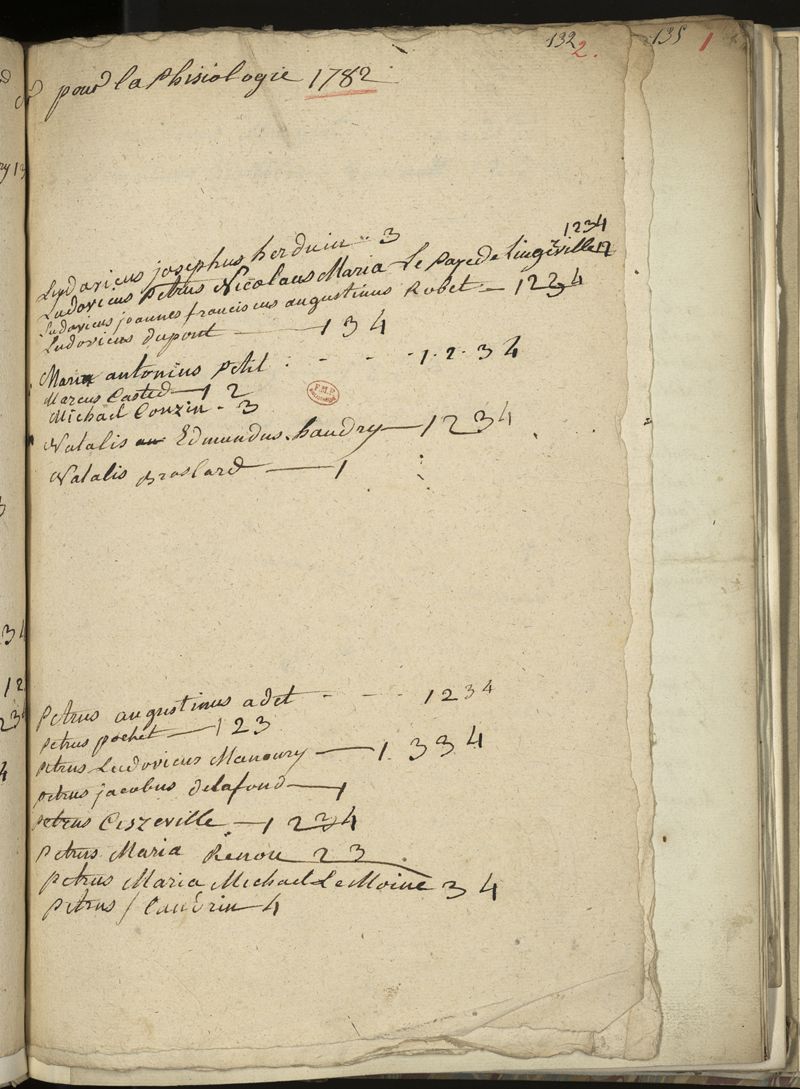 132 2. 135 1
pour la Phisiologie 1782
Ludovicus josephus herduin - 3
1234
Ludovicus Petrus Nicolaus Maria Le Paye de
Ludovicus joannes franciscus augustinus Robet - 1234
Ludovicus dupont - 1 3 4
Maria antonius Petit - - - 1. 2. 3 4
Marcus Casted - 1 2
Michael Couzin - 3
F.M.P.
Natalis Edmundus haudry - 1 2 3 4
Natalis Brossard - 1
Petrus augustinus adet - - - 1 2 3 4
Petrus pochet - 1 2 3
Petrus Ludovicus Manoury - 1. 3 3 4
Petrus jacobus delafond - 1
Petrus Ciszeville - 1 2 3 4
Petrus Maria Renou 2 3
Petrus Maria Michael Le Moine 3 4
Petrus / Caudrin 4